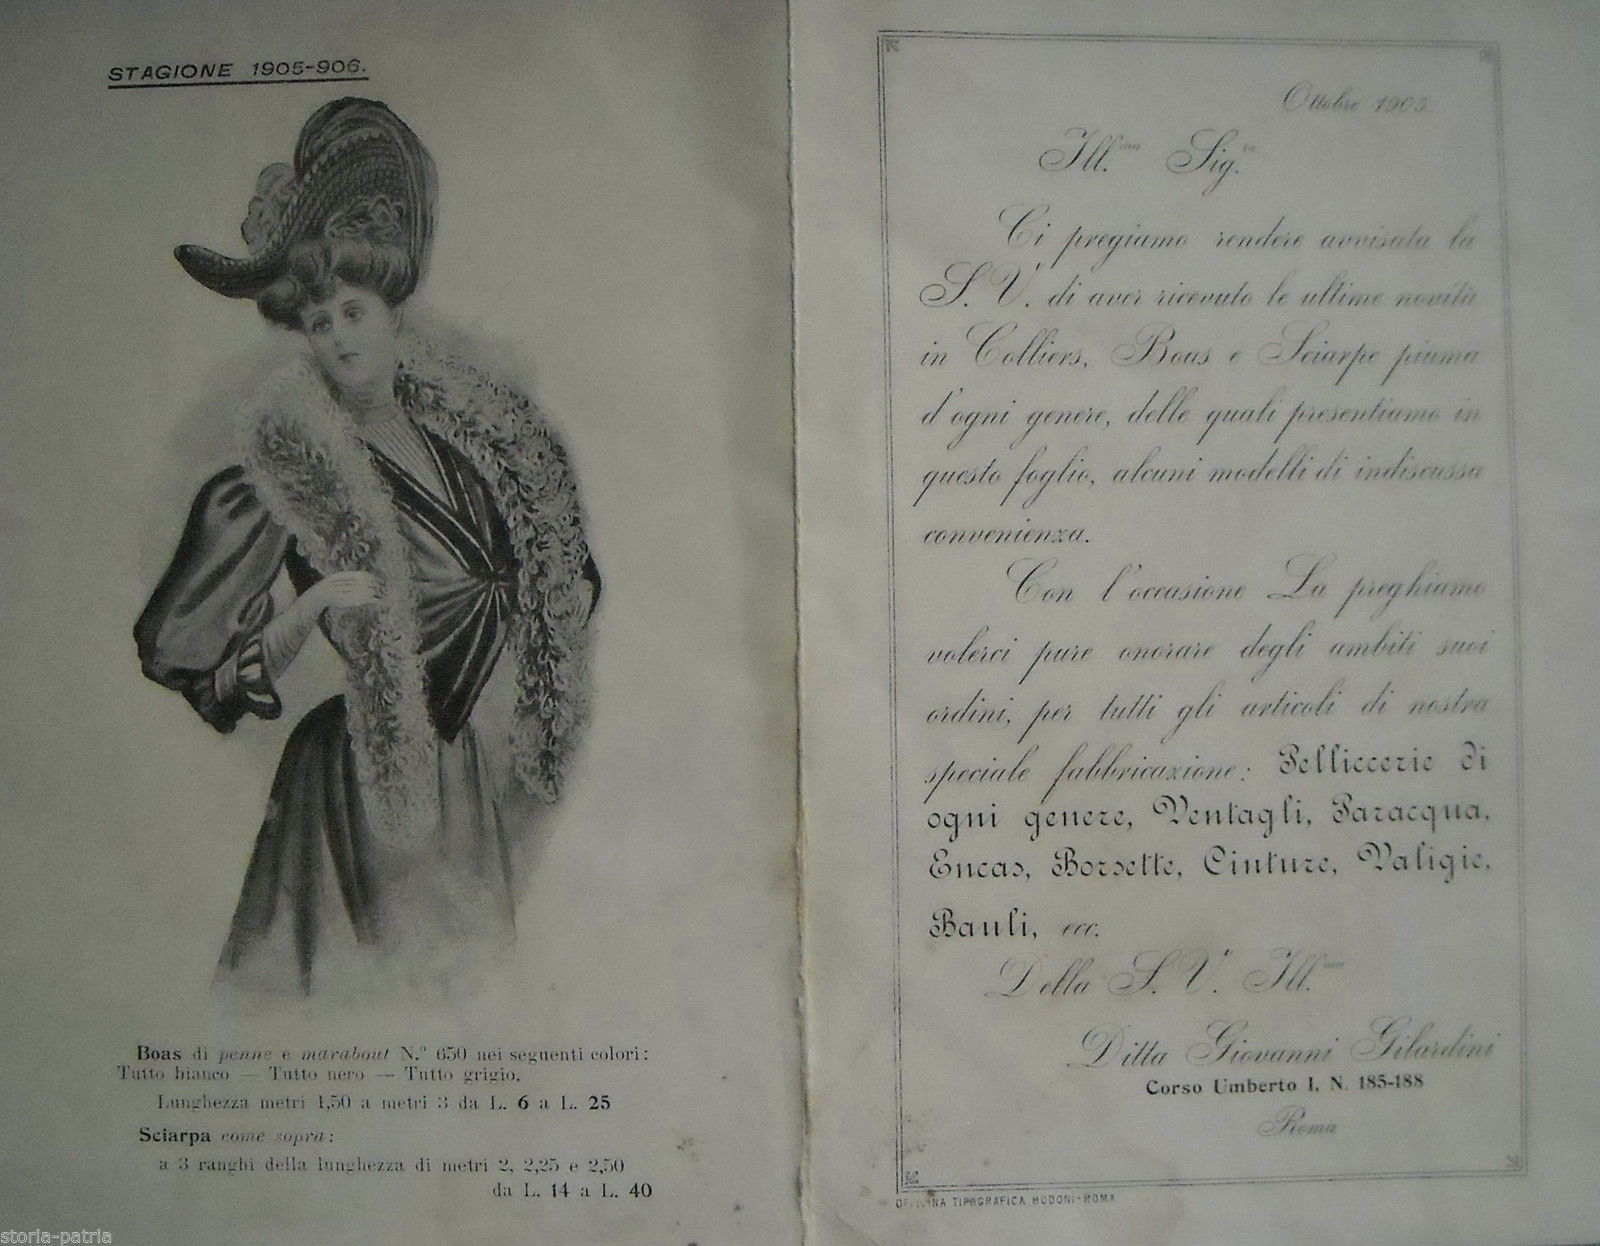 STAGIONE 1905-906.
Boas di penne e marabout N.° 650 nei seguenti colori:
Tutto bianco — Tutto nero — Tutto grigio.
Lunghezza metri 1,50 a metri 3 da L. 6 a L. 25
Sciarpa come sopra:
a 3 ranghi della lunghezza di metri 2, 2,25 e 2,50
da L. 14 a L. 40
Ottobre 1905
Ill.ma Sig.ra
Ci pregiamo rendere avvisata la
S. V. di aver ricevuto le ultime novità
in Colliers, Boas e Sciarpe piuma
d'ogni genere, delle quali presentiamo in
questo foglio, alcuni modelli di indiscussa
convenienza.
Con l'occasione La preghiamo
volerci pure onorare degli ambiti suoi
ordini, per tutti gli articoli di nostra
speciale fabbricazione: Pelliccerie di
ogni genere, Ventagli, Paracqua,
Encas, Borsette, Cinture, Valigie,
Bauli, ecc.
Della S. V. Ill.ma
Ditta Giovanni Gilardini
Corso Umberto I, N. 185-188
Roma
OFFICINA TIPOGRAFICA BODONI-ROMA
storia-patria